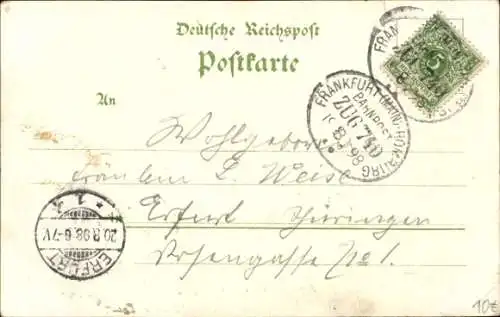 Deutsche Reichspost
Postkarte
An
Wohlgeboren
Fräulein L. Weise
Erfurt Thüringen
Rosengasse No 1.
FRANKFURT (MAIN)-HOMBURG
BAHNPOST
ZUG 740
8 98
FRAN
5
* 1 *
20.8.98.6-7V.
ERFURT
10€